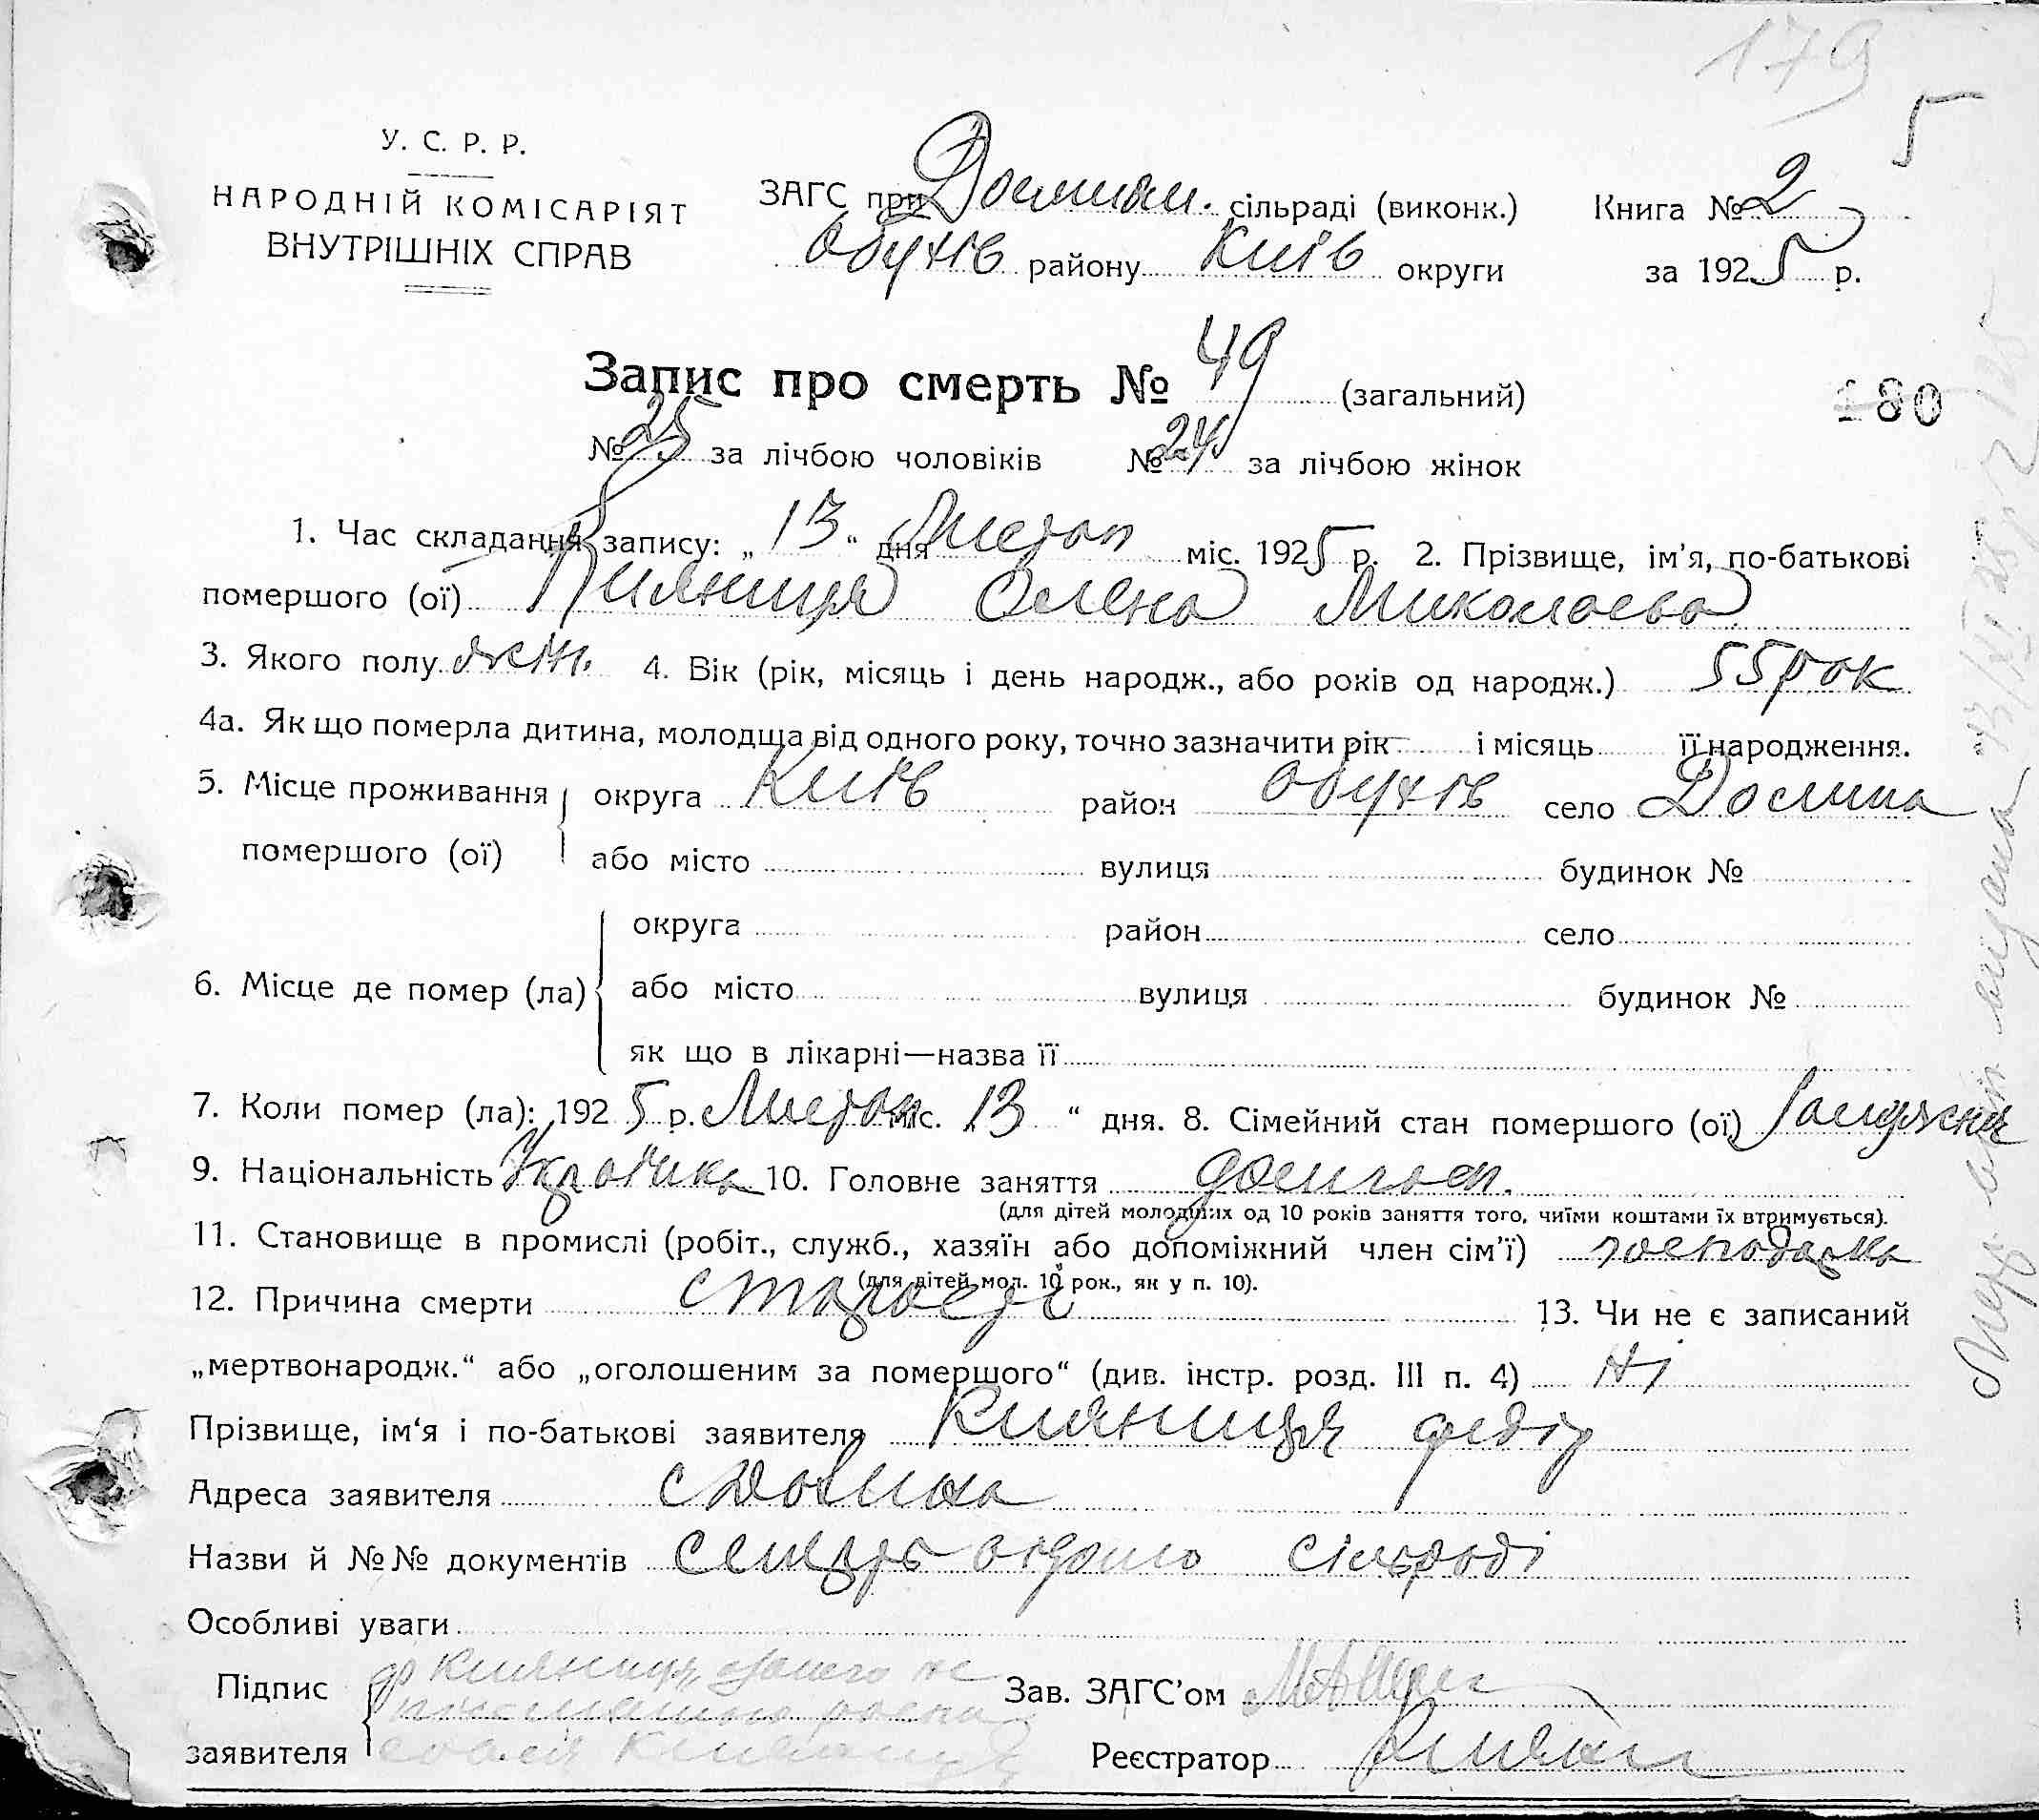 179
5
У. С. Р. Р.
НАРОДНІЙ КОМІСАРІЯТ
ВНУТРІШНІХ СПРАВ
ЗАГС при Долинян. сільраді (виконк.) Книга № 2
Обухів району Київ округи за 1925 р.
Запис про смерть № 49 (загальний)
180
№ 25 за лічбою чоловіків № 24 за лічбою жінок
1. Час складання запису: „ 13 “ дня Листоп міс. 1925 р. 2. Прізвище, ім'я, по-батькові
помершого (ої) Кияниця Олена Миколаєва
3. Якого полу жін. 4. Вік (рік, місяць і день народж., або років од народж.) 55 рок
4а. Як що померла дитина, молодща від одного року, точно зазначити рік і місяць її народження.
5. Місце проживання округа Київ район Обухів село Долина
помершого (ої) або місто вулиця будинок №
округа район село
6. Місце де помер (ла) або місто вулиця будинок №
як що в лікарні—назва її
7. Коли помер (ла): 1925 р. Листоп міс. 13 “ дня. 8. Сімейний стан помершого (ої) Замужня
9. Національність Українка 10. Головне заняття домгосп.
(для дітей молодіших од 10 років заняття того, чиїми коштами їх втримується).
11. Становище в промислі (робіт., служб., хазяїн або допоміжний член сім'ї) господарка
(для дітей мол. 10 рок., як у п. 10).
12. Причина смерти старость 13. Чи не є записаний
„мертвонародж.“ або „оголошеним за помершого“ (див. інстр. розд. III п. 4) Ні
Прізвище, ім‘я і по-батькові заявителя Кияниця Федір
Адреса заявителя с Долина
Назви й №№ документів сільраді
Особливі уваги
Підпис Кияниця Зав. ЗАГС'ом
заявителя Реєстратор